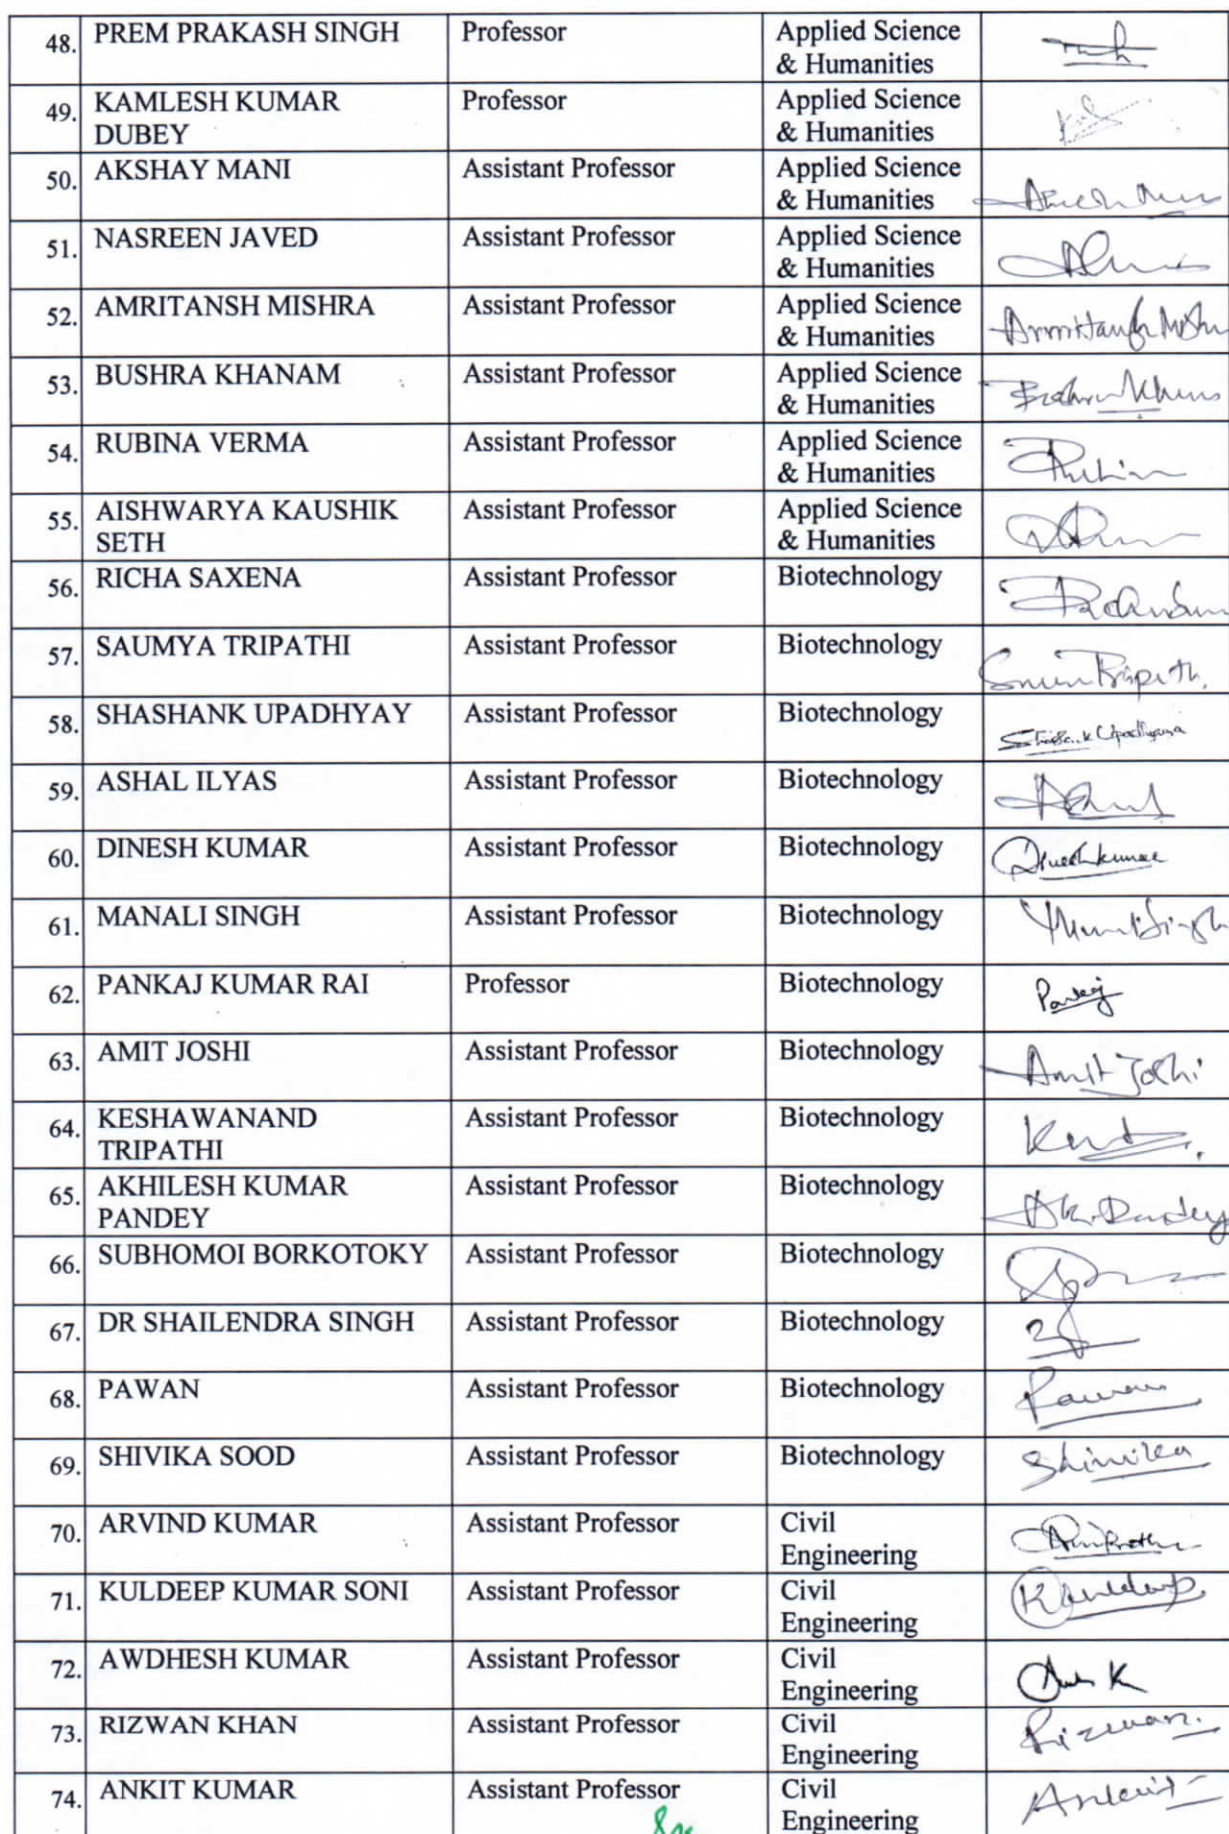 48. PREM PRAKASH SINGH Professor Applied Science
& Humanities
49. KAMLESH KUMAR Professor Applied Science
DUBEY & Humanities
50. AKSHAY MANI Assistant Professor Applied Science
& Humanities
51. NASREEN JAVED Assistant Professor Applied Science
& Humanities
52. AMRITANSH MISHRA Assistant Professor Applied Science
& Humanities
53. BUSHRA KHANAM Assistant Professor Applied Science
& Humanities
54. RUBINA VERMA Assistant Professor Applied Science
& Humanities
55. AISHWARYA KAUSHIK Assistant Professor Applied Science
SETH & Humanities
56. RICHA SAXENA Assistant Professor Biotechnology
57. SAUMYA TRIPATHI Assistant Professor Biotechnology
58. SHASHANK UPADHYAY Assistant Professor Biotechnology
59. ASHAL ILYAS Assistant Professor Biotechnology
60. DINESH KUMAR Assistant Professor Biotechnology Dinesh kumar
61. MANALI SINGH Assistant Professor Biotechnology
62. PANKAJ KUMAR RAI Professor Biotechnology Pankaj
63. AMIT JOSHI Assistant Professor Biotechnology Amit Joshi
64. KESHAWANAND Assistant Professor Biotechnology
TRIPATHI
65. AKHILESH KUMAR Assistant Professor Biotechnology
PANDEY
66. SUBHOMOI BORKOTOKY Assistant Professor Biotechnology
67. DR SHAILENDRA SINGH Assistant Professor Biotechnology
68. PAWAN Assistant Professor Biotechnology Pawan
69. SHIVIKA SOOD Assistant Professor Biotechnology Shivika
70. ARVIND KUMAR Assistant Professor Civil
Engineering
71. KULDEEP KUMAR SONI Assistant Professor Civil Kuldeep
Engineering
72. AWDHESH KUMAR Assistant Professor Civil
Engineering
73. RIZWAN KHAN Assistant Professor Civil Rizwan.
Engineering
74. ANKIT KUMAR Assistant Professor Civil Ankit
Engineering